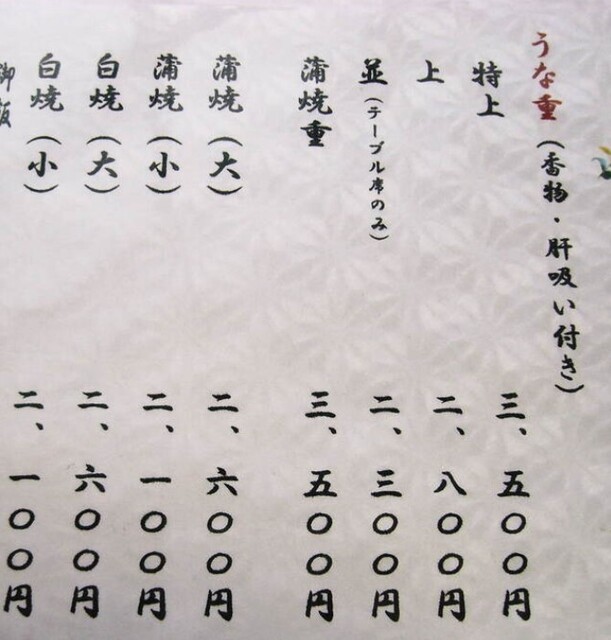 うな重（香物・肝吸い付き）
特上 三、五〇〇円
上 二、八〇〇円
並（テーブル席のみ） 二、三〇〇円
蒲焼重 三、五〇〇円
蒲焼（大） 二、六〇〇円
蒲焼（小） 二、一〇〇円
白焼（大） 二、六〇〇円
白焼（小） 二、一〇〇円
御飯